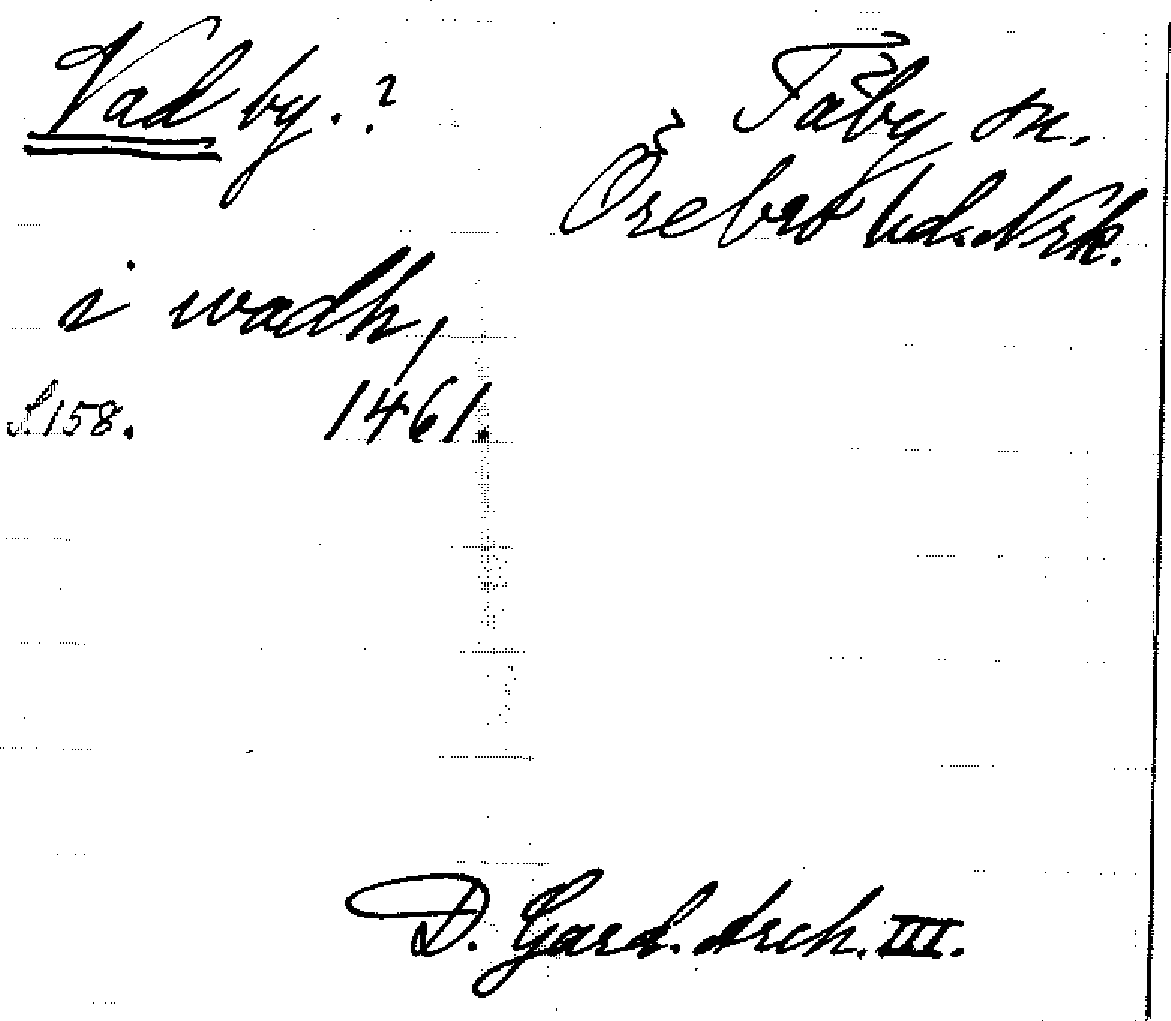 Vad by.?
Täby sn.
Örebro hd. Nrk.
i wadh,
S. 158. 1461.
D. Gard. Arch. III.